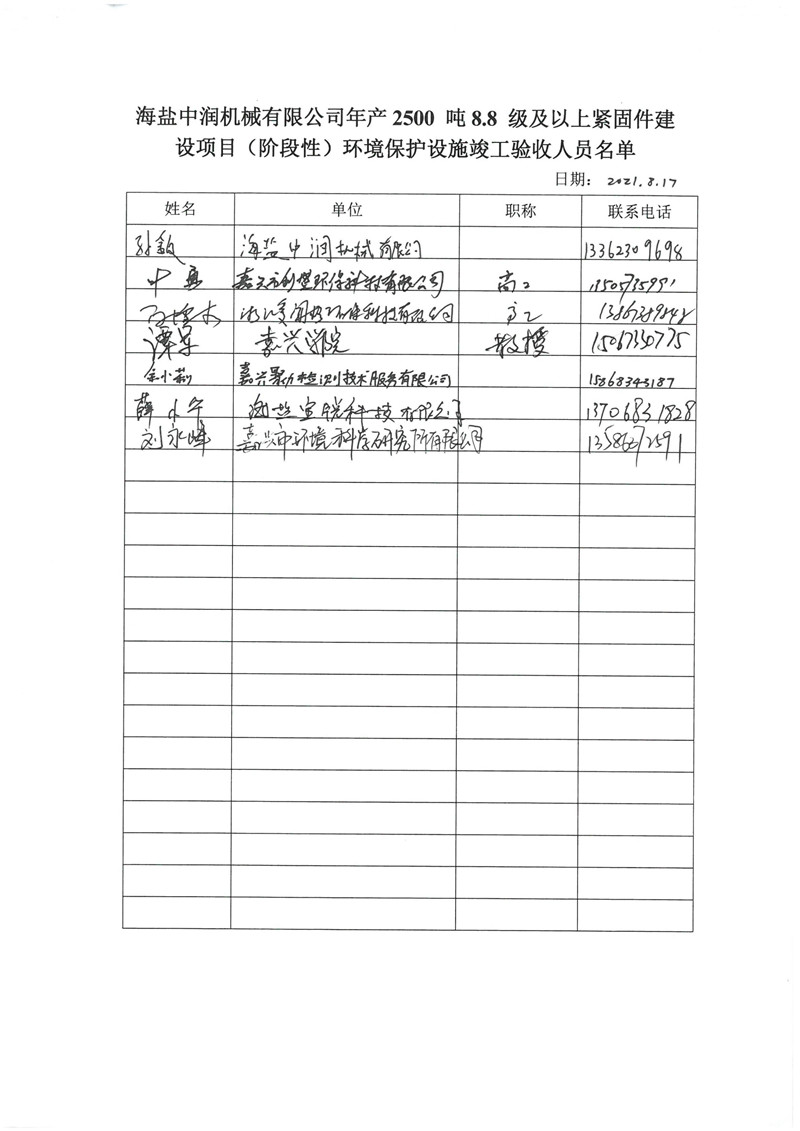 海盐中润机械有限公司年产 2500 吨 8.8 级及以上紧固件建
设项目（阶段性）环境保护设施竣工验收人员名单
日期： 2021.8.17
姓名 单位 职称 联系电话
海盐中润机械有限公司 13362309698
嘉兴市 环保科技有限公司 高工
高工
谭 嘉兴学院 教授 15067330775
金小莉 嘉兴聚力检测技术服务有限公司 15868343187
薛小宁 海盐宣锐科技有限公司 13706831828
刘永峰 嘉兴市环境科学研究所有限公司 13586672591